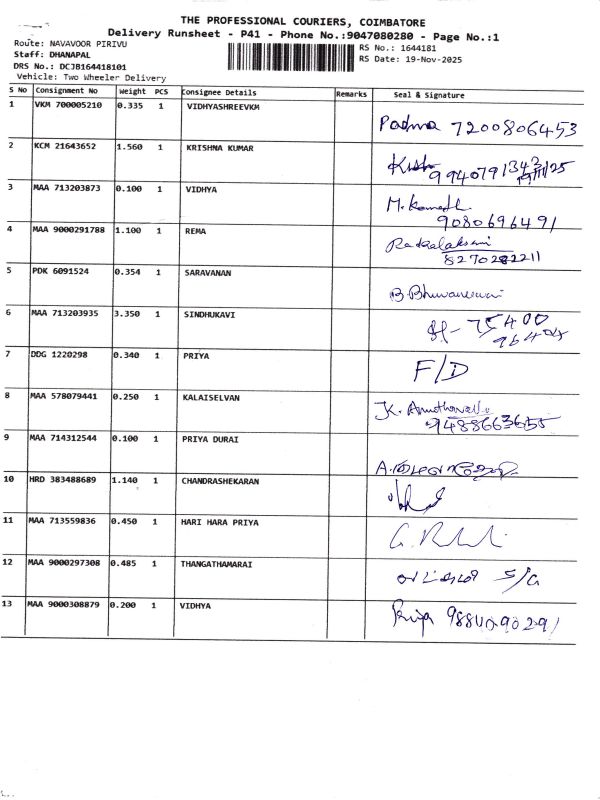 THE PROFESSIONAL COURIERS, COIMBATORE
Delivery Runsheet - P41 - Phone No.:9047080280 - Page No.:1
Route: NAVAVOOR PIRIVU
RS No.: 1644181
Staff: DHANAPAL
RS Date: 19-Nov-2025
DRS No.: DCJB164418101
Vehicle: Two Wheeler Delivery
S No Consignment No Weight PCS Consignee Details Remarks Seal & Signature
1 VKM 700005210 0.335 1 VIDHYASHREEVKM
Padma 7200806453
2 KCM 21643652 1.560 1 KRISHNA KUMAR
9940791343
19/11/25
3 MAA 713203873 0.100 1 VIDHYA
M. Kamath
9080696491
4 MAA 9000291788 1.100 1 REMA
8270282211
5 PDK 6091524 0.354 1 SARAVANAN
B. Bhuvaneswari
6 MAA 713203935 3.350 1 SINDHUKAVI
75400
96404
7 DDG 1220298 0.340 1 PRIYA
F/D
8 MAA 578079441 0.250 1 KALAISELVAN
9488663655
9 MAA 714312544 0.100 1 PRIYA DURAI
10 HRD 383488689 1.140 1 CHANDRASHEKARAN
11 MAA 713559836 0.450 1 HARI HARA PRIYA
12 MAA 9000297308 0.485 1 THANGATHAMARAI
S/G
13 MAA 9000308879 0.200 1 VIDHYA
Priya